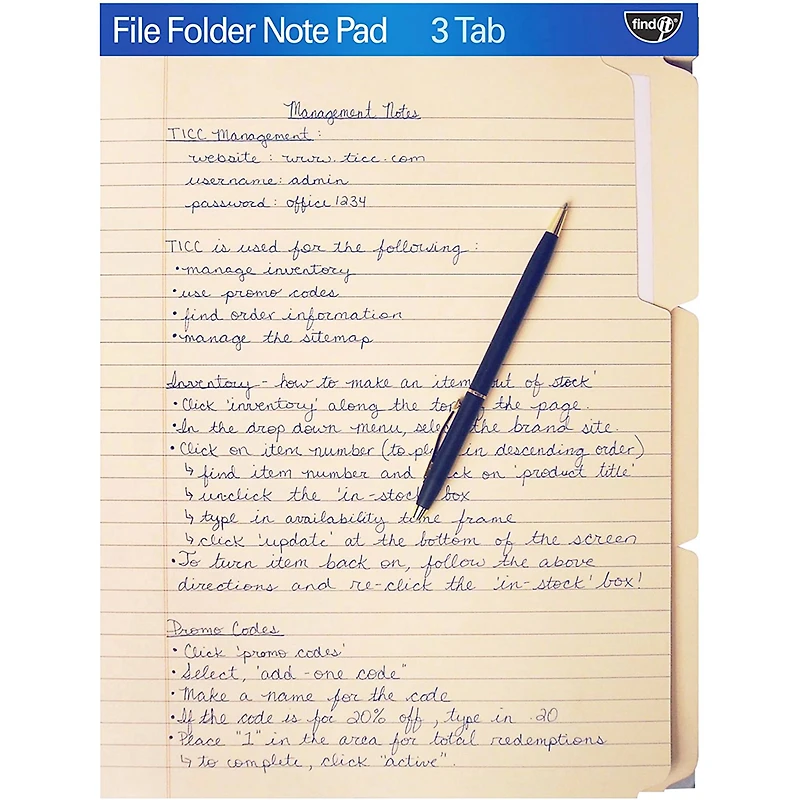 File Folder Note Pad 3 Tab
find it®
Management Notes
TICC Management:
website: www.ticc.com
username: admin
password: office1234
TICC is used for the following:
• manage inventory
• use promo codes
• find order information
• manage the sitemap
Inventory - how to make an item out of stock'
• Click 'inventory' along the top the page.
• In the drop down menu, the brand site.
• Click on item number (to in descending order)
↳ find item number and on 'product title'
↳ unclick the 'in-stock' box
↳ type in availability time frame
↳ click 'update' at the bottom of the screen
• To turn item back on, follow the above
directions and re-click the 'in-stock' box!
Promo Codes
• Click 'promo codes'
• Select, 'add-one code"
• Make a name for the code
• If the code is for 20% off, type in .20
• Place "1" in the area for total redemptions
↳ to complete, click "active".